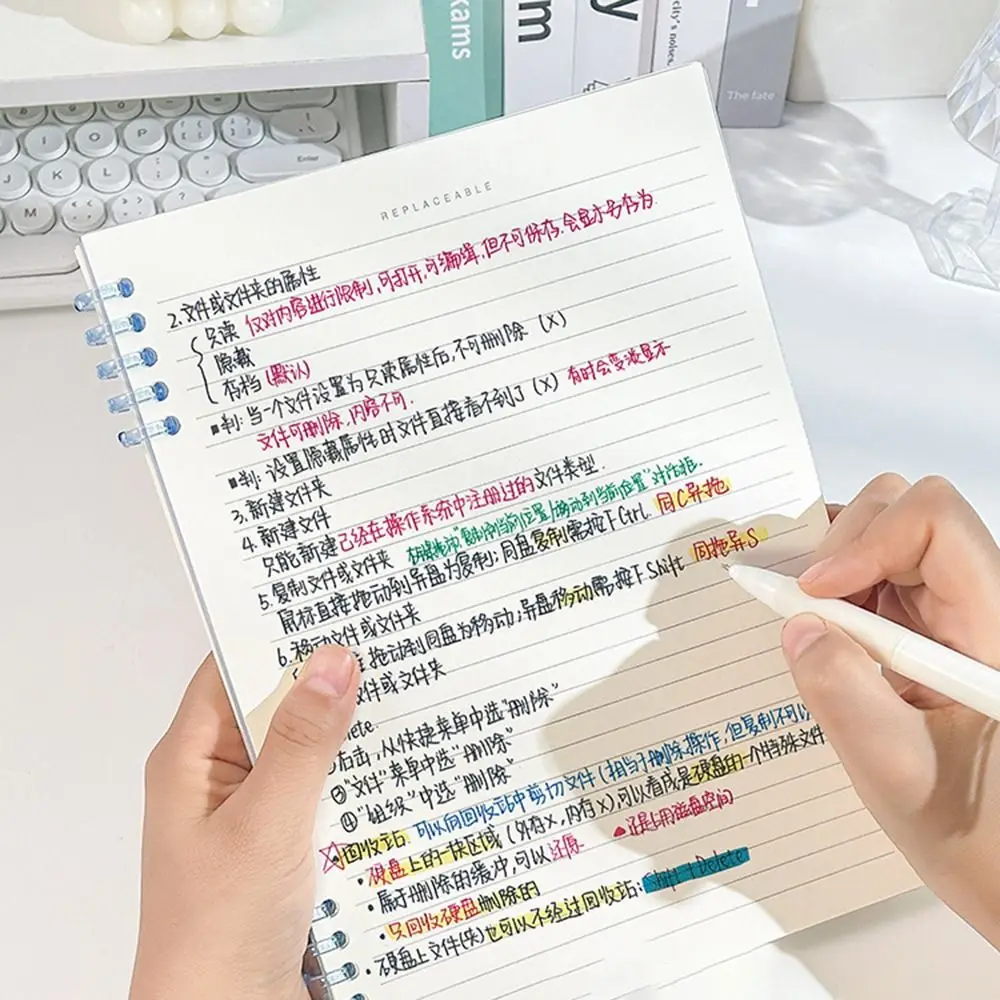 kams
m
y
city's noises
The fate
I
O
P
J
K
L
Enter
M
REPLACEABLE
2.文件或文件夹的属性
只读 仅对内容进行限制,可打开,可编辑,但不可保存.会显示另存为
隐藏
存档(默认)
■判:当一个文件设置为只读属性后,不可删除 (X)
文件可删除,内容不可.
■判:设置隐藏属性的文件直接看不到了 (X) 有时会变淡显示
3.新建文件夹
4.新建文件
只能新建已经在操作系统中注册过的文件类型.
5.复制文件或文件夹 "复制到当前位置/移动到当前位置"对话框.
鼠标直接拖动到异盘为复制;同盘复制需按下Ctrl 同C异拖
6.移动文件或文件夹
拖动到同盘为移动;异盘移动需按下Shift 同拖异S
文件或文件夹
右击,从快捷菜单中选"删除"
③"文件"菜单中选"删除"
④"组织"中选"删除"
回收站: 可以向回收站中剪切文件(相当于删除操作,但复制不可以
•硬盘上的一块区域(外存x,内存x),可以看成是硬盘的一个特殊文件
•属于删除的缓冲,可以还原 ▲还是占用磁盘空间
•只回收硬盘删除的
•硬盘上文件(夹)也可以不经过回收站:Shift+Delete